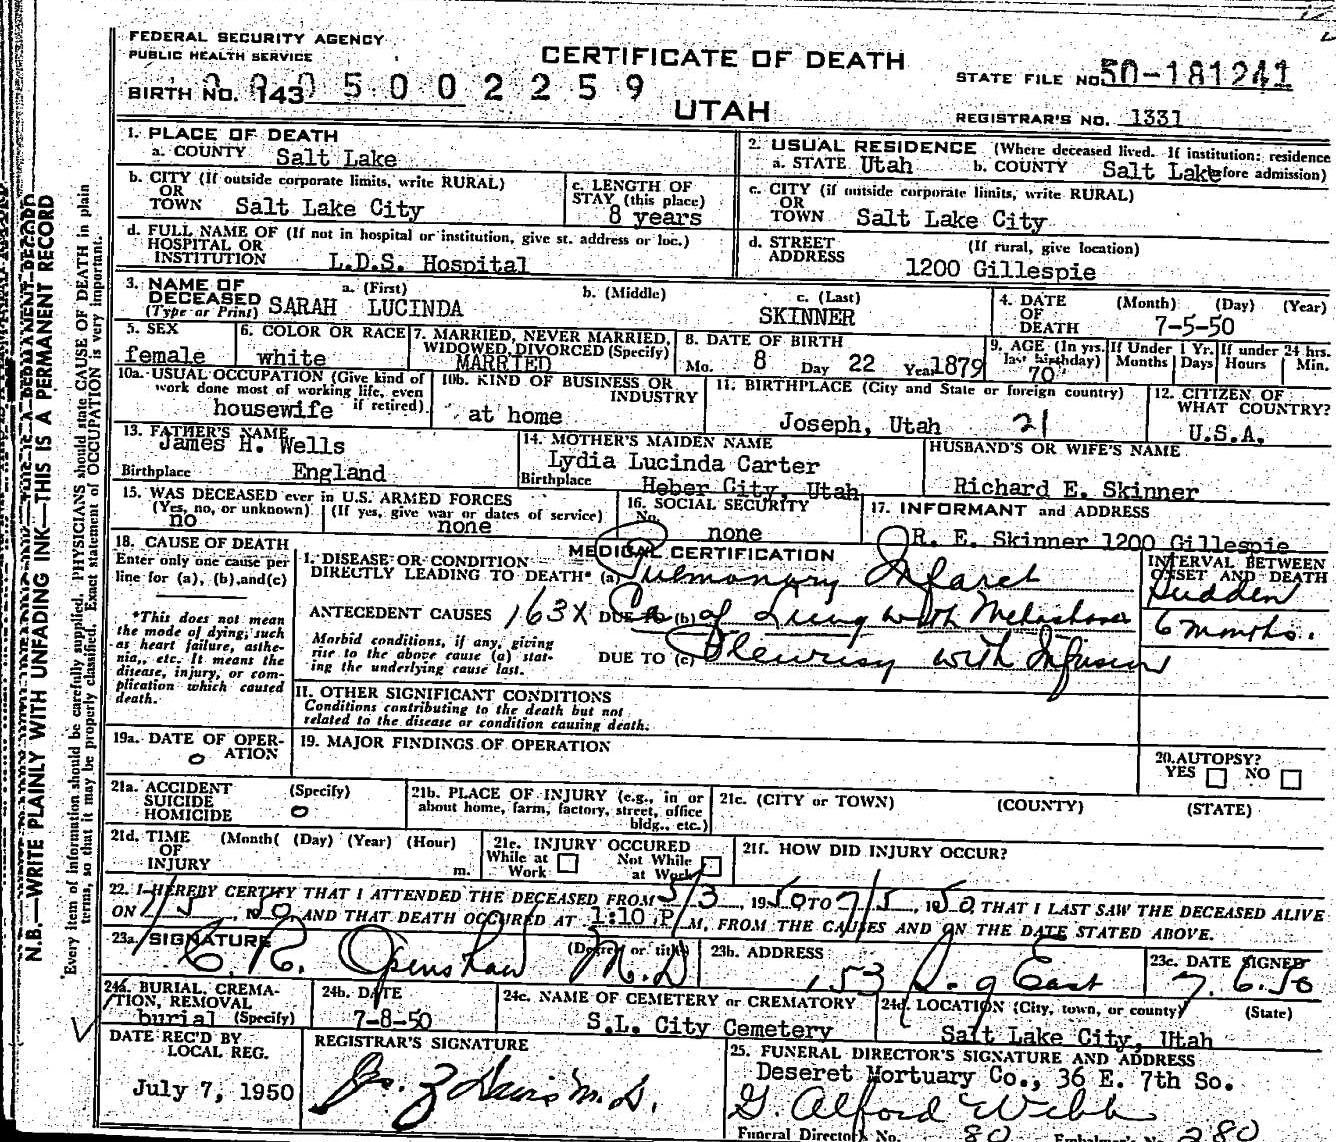 FEDERAL SECURITY AGENCY
PUBLIC HEALTH SERVICE
CERTIFICATE OF DEATH
STATE FILE NO. 50-181241
BIRTH NO. 143 5 0 0 2 2 5 9
UTAH
REGISTRAR'S NO. 1331
1. PLACE OF DEATH
a. COUNTY Salt Lake
2. USUAL RESIDENCE (Where deceased lived. If institution: residence before admission)
a. STATE Utah b. COUNTY Salt Lake
b. CITY (If outside corporate limits, write RURAL)
OR
TOWN Salt Lake City
c. LENGTH OF
STAY (this place)
8 years
c. CITY (if outside corporate limits, write RURAL)
OR
TOWN Salt Lake City
d. FULL NAME OF (If not in hospital or institution, give st. address or loc.)
HOSPITAL OR
INSTITUTION L.D.S. Hospital
d. STREET (If rural, give location)
ADDRESS
1200 Gillespie
3. NAME OF a. (First) b. (Middle) c. (Last)
DECEASED SARAH LUCINDA SKINNER
(Type or Print)
4. DATE (Month) (Day) (Year)
OF
DEATH 7-5-50
5. SEX
female
6. COLOR OR RACE
white
7. MARRIED, NEVER MARRIED,
WIDOWED, DIVORCED (Specify)
MARRIED
8. DATE OF BIRTH
Mo. 8 Day 22 Year 1879
9. AGE (In yrs. last birthday) If Under 1 Yr. If under 24 hrs.
70 Months Days Hours Min.
10a. USUAL OCCUPATION (Give kind of
work done most of working life, even
housewife if retired).
10b. KIND OF BUSINESS OR
INDUSTRY
at home
11. BIRTHPLACE (City and State or foreign country)
Joseph, Utah 21
12. CITIZEN OF
WHAT COUNTRY?
U.S.A.
13. FATHER'S NAME
James H. Wells
Birthplace England
14. MOTHER'S MAIDEN NAME
Lydia Lucinda Carter
Birthplace Heber City, Utah
HUSBAND'S OR WIFE'S NAME
Richard E. Skinner
15. WAS DECEASED ever in U.S. ARMED FORCES
(Yes, no, or unknown) (If yes, give war or dates of service)
no none
16. SOCIAL SECURITY
No.
none
17. INFORMANT and ADDRESS
R. E. Skinner 1200 Gillespie
18. CAUSE OF DEATH
Enter only one cause per
line for (a), (b), and (c)
*This does not mean
the mode of dying, such
as heart failure, asthe-
nia, etc. It means the
disease, injury, or com-
plication which caused
death.
MEDICAL CERTIFICATION
INTERVAL BETWEEN
ONSET AND DEATH
I. DISEASE OR CONDITION
DIRECTLY LEADING TO DEATH* (a) Pulmonary Infarct Sudden
ANTECEDENT CAUSES 163X DUE to (b) Ca of Lung with Metastases 6 months.
Morbid conditions, if any, giving
rise to the above cause (a) stat-
ing the underlying cause last.
DUE TO (c) Pleurisy with Infusion
II. OTHER SIGNIFICANT CONDITIONS
Conditions contributing to the death but not
related to the disease or condition causing death.
19a. DATE OF OPER-
ATION
o
19. MAJOR FINDINGS OF OPERATION
20. AUTOPSY?
YES NO
21a. ACCIDENT (Specify)
SUICIDE
HOMICIDE o
21b. PLACE OF INJURY (e.g., in or
about home, farm, factory, street, office
bldg., etc.)
21c. (CITY or TOWN) (COUNTY) (STATE)
21d. TIME (Month( (Day) (Year) (Hour)
OF
INJURY m.
21e. INJURY OCCURED
While at Work Not While at Work
21f. HOW DID INJURY OCCUR?
22. I HEREBY CERTIFY THAT I ATTENDED THE DECEASED FROM 5/3, 1950 TO 7/5, 1950, THAT I LAST SAW THE DECEASED ALIVE
ON 7/5, 1950 AND THAT DEATH OCCURED AT 1:10 P M, FROM THE CAUSES AND ON THE DATE STATED ABOVE.
23a. SIGNATURE (Degree or title)
C. R. Openshaw M.D
23b. ADDRESS
153 East
23c. DATE SIGNED
7.6.50
24a. BURIAL, CREMA-
TION, REMOVAL
burial (Specify)
24b. DATE
7-8-50
24c. NAME OF CEMETERY or CREMATORY
S.L. City Cemetery
24d. LOCATION (City, town, or county) (State)
Salt Lake City, Utah
DATE REC'D BY
LOCAL REG.
July 7, 1950
REGISTRAR'S SIGNATURE
M.D.
25. FUNERAL DIRECTOR'S SIGNATURE AND ADDRESS
Deseret Mortuary Co., 36 E. 7th So.
G. Alford Webb
Funeral Director's No. 80 Embalmer's No. 280
N.B.—WRITE PLAINLY WITH UNFADING INK—THIS IS A PERMANENT RECORD
Every item of information should be carefully supplied. PHYSICIANS should state CAUSE OF DEATH in plain
terms, so that it may be properly classified. Exact statement of OCCUPATION is very important.